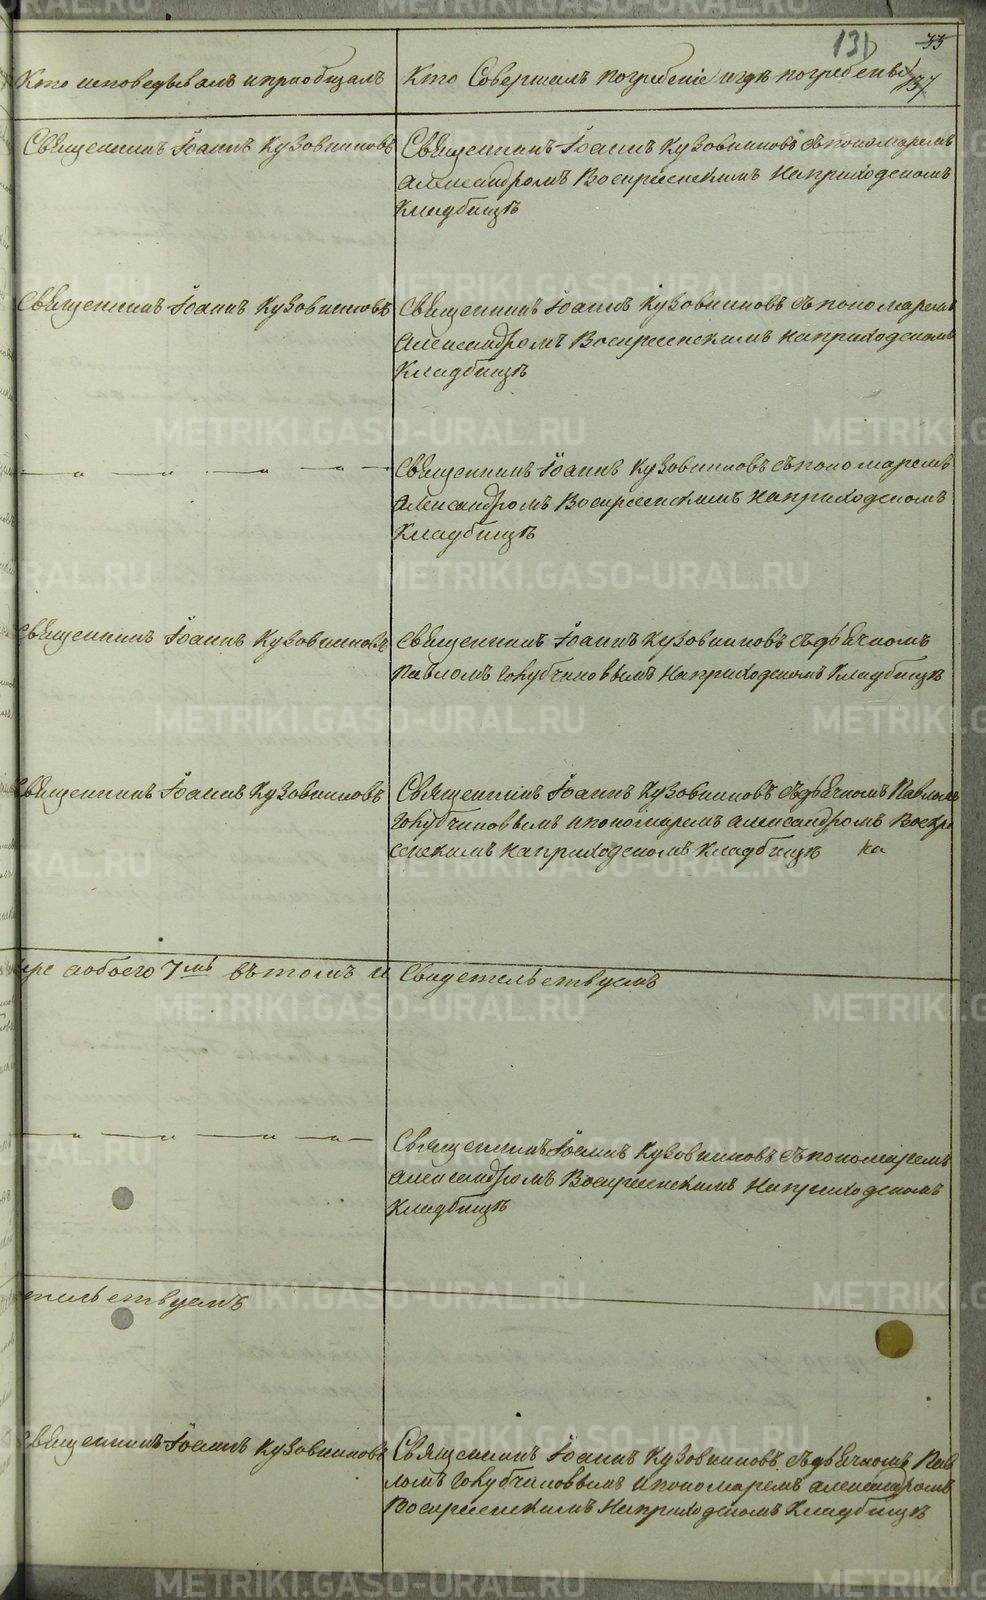 131
33
137
Кто исповедывалъ и приобщалъ
Кто Совершалъ погребеніе и гдѣ погребены
Священникъ Іоаннъ Кузовниковъ
Священникъ Іоаннъ Кузовниковъ съ пономаремъ
Александромъ Воскресенскимъ на приходскомъ
Кладбищѣ
Священникъ Іоаннъ Кузовниковъ
Священникъ Іоаннъ Кузовниковъ съ пономаремъ
Александромъ Воскресенскимъ на приходскомъ
Кладбищѣ
Священникъ Іоаннъ Кузовниковъ съ пономаремъ
Александромъ Воскресенскимъ на приходскомъ
Кладбищѣ
Священникъ Іоаннъ Кузовниковъ
Священникъ Іоаннъ Кузовниковъ съ дьячкомъ
Павломъ Голубчиковымъ на приходскомъ Кладбищѣ
Священникъ Іоаннъ Кузовниковъ
Священникъ Іоаннъ Кузовниковъ съ дьячкомъ Павломъ
Голубчиковымъ и пономаремъ Александромъ Воскре
сенскимъ на приходскомъ Кладбищѣ на
ре а обоего 7мь въ томъ и Свидетельствуемъ
Священникъ Іоаннъ Кузовниковъ съ пономаремъ
Александромъ Воскресенскимъ на приходскомъ
Кладбищѣ
тельствуемъ
Священникъ Іоаннъ Кузовниковъ
Священникъ Іоаннъ Кузовниковъ съ дьячкомъ Пав
ломъ Голубчиковымъ и пономаремъ Александромъ
Воскресенскимъ на приходскомъ Кладбищѣ
METRIKI.GASO-URAL.RU